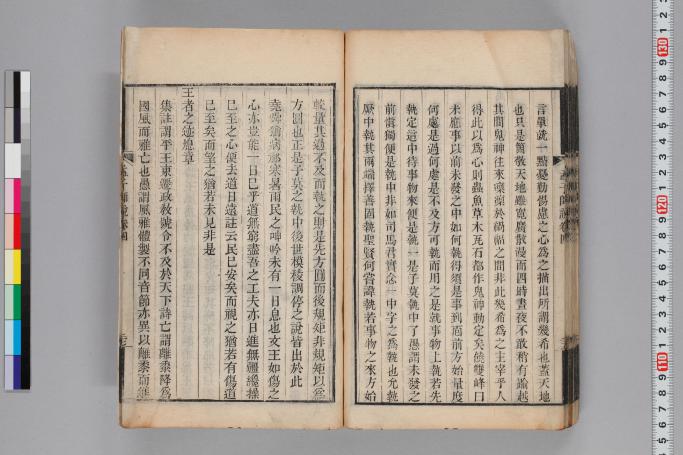 言畢說一點憂勤惕慮之心爲之描出所謂幾希也蓋天地
也只是箇敬天地雖寬廣散漫而四時晝夜不敢稍有踰越
其間鬼神往來凜凜於禍福之間非此幾希爲之主宰乎人
得此以爲心則蟲魚草木瓦石都作鬼神動定矣饒雙峰曰
未應事以前未發之中如何執得須是事到面前方始量度
何處是過何處是不及方可執而用之是就事物上執若先
執定這中待事物來便是執一是子莫執中了愚謂未發之
前慎獨便是執中非如司馬君實念一中字之爲執也允執
厥中執其兩端擇善固執聖賢何嘗諱執若事物之來方始
較量其過不及而執之則是先方圓而後規矩非規矩以爲
方圓也正是子莫之執中後世模稜調停之說皆出於此
堯舜猶病祁寒暑雨民之呻吟未有一日息也文王如傷之
心亦豈能一日已乎道無窮盡吾之工夫亦日進無疆纔操
已至之心便去道日遠註云民已安矣而視之猶若有傷道
已至矣而望之猶若未見非是
王者之迹熄章
集註謂平王東遷政教號令不及於天下詩亡謂離黍降爲
國風而雅亡也愚謂風雅體製不同音節亦異以離黍而雜
130
120
110